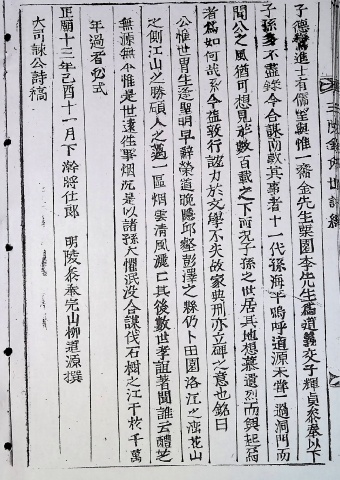 子德騫進士有儒望與惟一齋金先生栗園李先生爲道義交子輝貞參奉以下
子孫多不盡錄今合謀而敦其事者十一代孫海平嗚呼道源未嘗一過洞門而
聞公之風猶可想見於數百載之下而況子孫之世居其地想慕遺烈而興起焉
者爲如何哉系今益敦行誼力於文學不失故家典刑亦立碑之意也銘曰
公惟世胄生逢聖明早辭榮道晩隱邱壑彭澤之縣仍卜田園洛江之涘花山
之側江山之勝碩人之薖一區烟雲清風灑
其後數世孝誼著聞誰云醴芝
無源無
惟是世遠徃事烟沉是以諸孫大懼泯没合謀伐石樹之江干於千萬
年過者必式
正廟十三年己酉十一月下澣將仕郞 明陵參奉完山柳道源撰
大司諫公詩稿